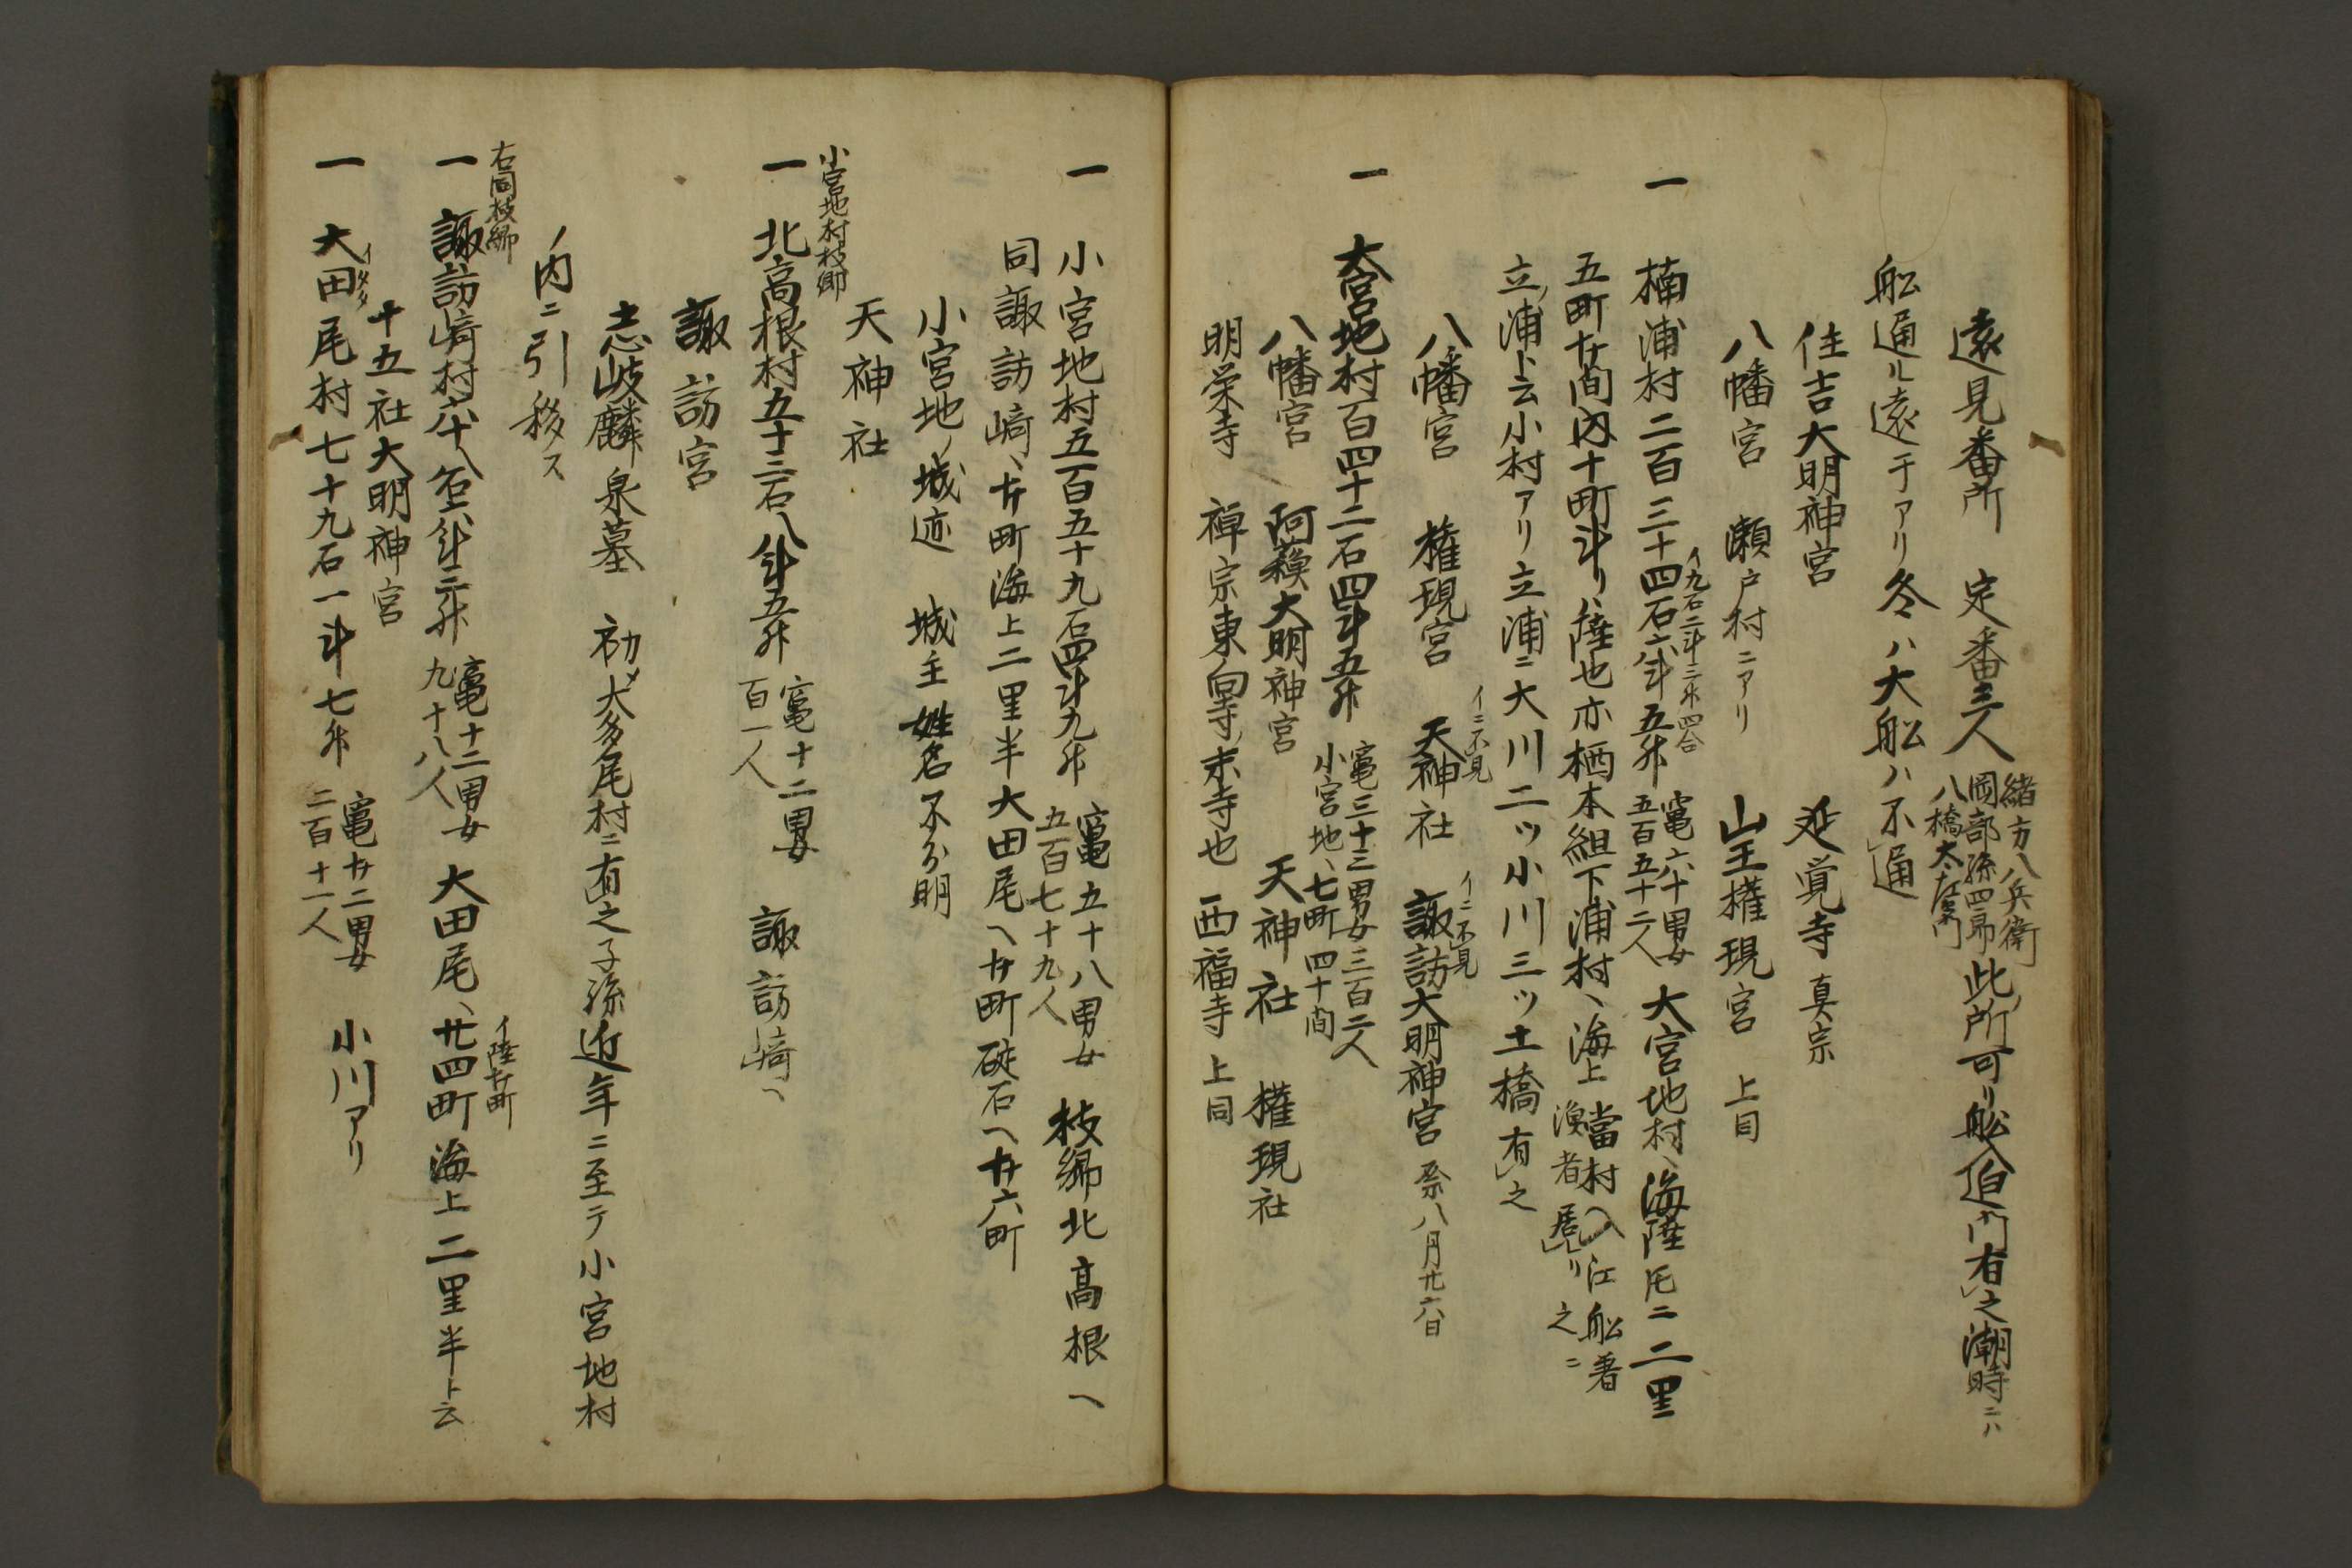 遠見番所　定番三人　緒方八兵衛　岡部孫四郎　八橋太左衛門　此ノ所可リ舩入迫門有之潮時ニハ
舩通ル遠干アリ冬ハ大舩ハ不通
住吉大明神宮　延覚寺　真宗
八幡宮　瀬戸村ニアリ　山王権現宮　上同
イ九石二斗三升四合
一　楠浦村二百三十四石六斗五升　竃六十男女五百五十二人　大宮地村ヘ海陸圧ニ二里
五町廿間内十町斗リハ陸也亦栖本組下浦村ヘ海上　當村入江舩着漁者居リ之ニ
立ノ浦ト云小村アリ立浦ニ大川二ツ小川三ツ土橋有之
イニ不見　イニ不見
八幡宮　権現宮　天神社　諏訪大明神宮　祭八月廿六日
一　大宮地村百四十二石四斗五升　竃三十三男女三百二人　小宮地ヘ七町四十間
八幡宮　阿蘓大明神宮　天神社　権現社
明栄寺　禅宗東向寺ノ末寺也　西福寺　上同
一　小宮地村五百五十九石四斗九升　竃五十八男女五百七十九人　枝郷北高根ヘ
同諏訪﨑ヘ廿町海上二里半大田尾ヘ廿町硴石ヘ廿六町
小宮地ノ城迹　城主姓名不分明
天神社
小宮地村枝郷
一　北高根村五十三石八斗五升　竃十二男女百一人　諏訪﨑ヘ
諏訪宮
志岐麟泉墓　初メ大多尾村ニ有之子孫近年ニ至テ小宮地村
ノ内ニ引移ス
右同枝郷
一　諏訪﨑村六十八石六斗三升　竃十二男女九十八人　大田尾ヘ廿四町海上二里半ト云
イ陸廿町
十五社大明神宮
イタタ
一　大田尾村七十九石一斗七升　竃廿二男女二百十一人　小川アリ